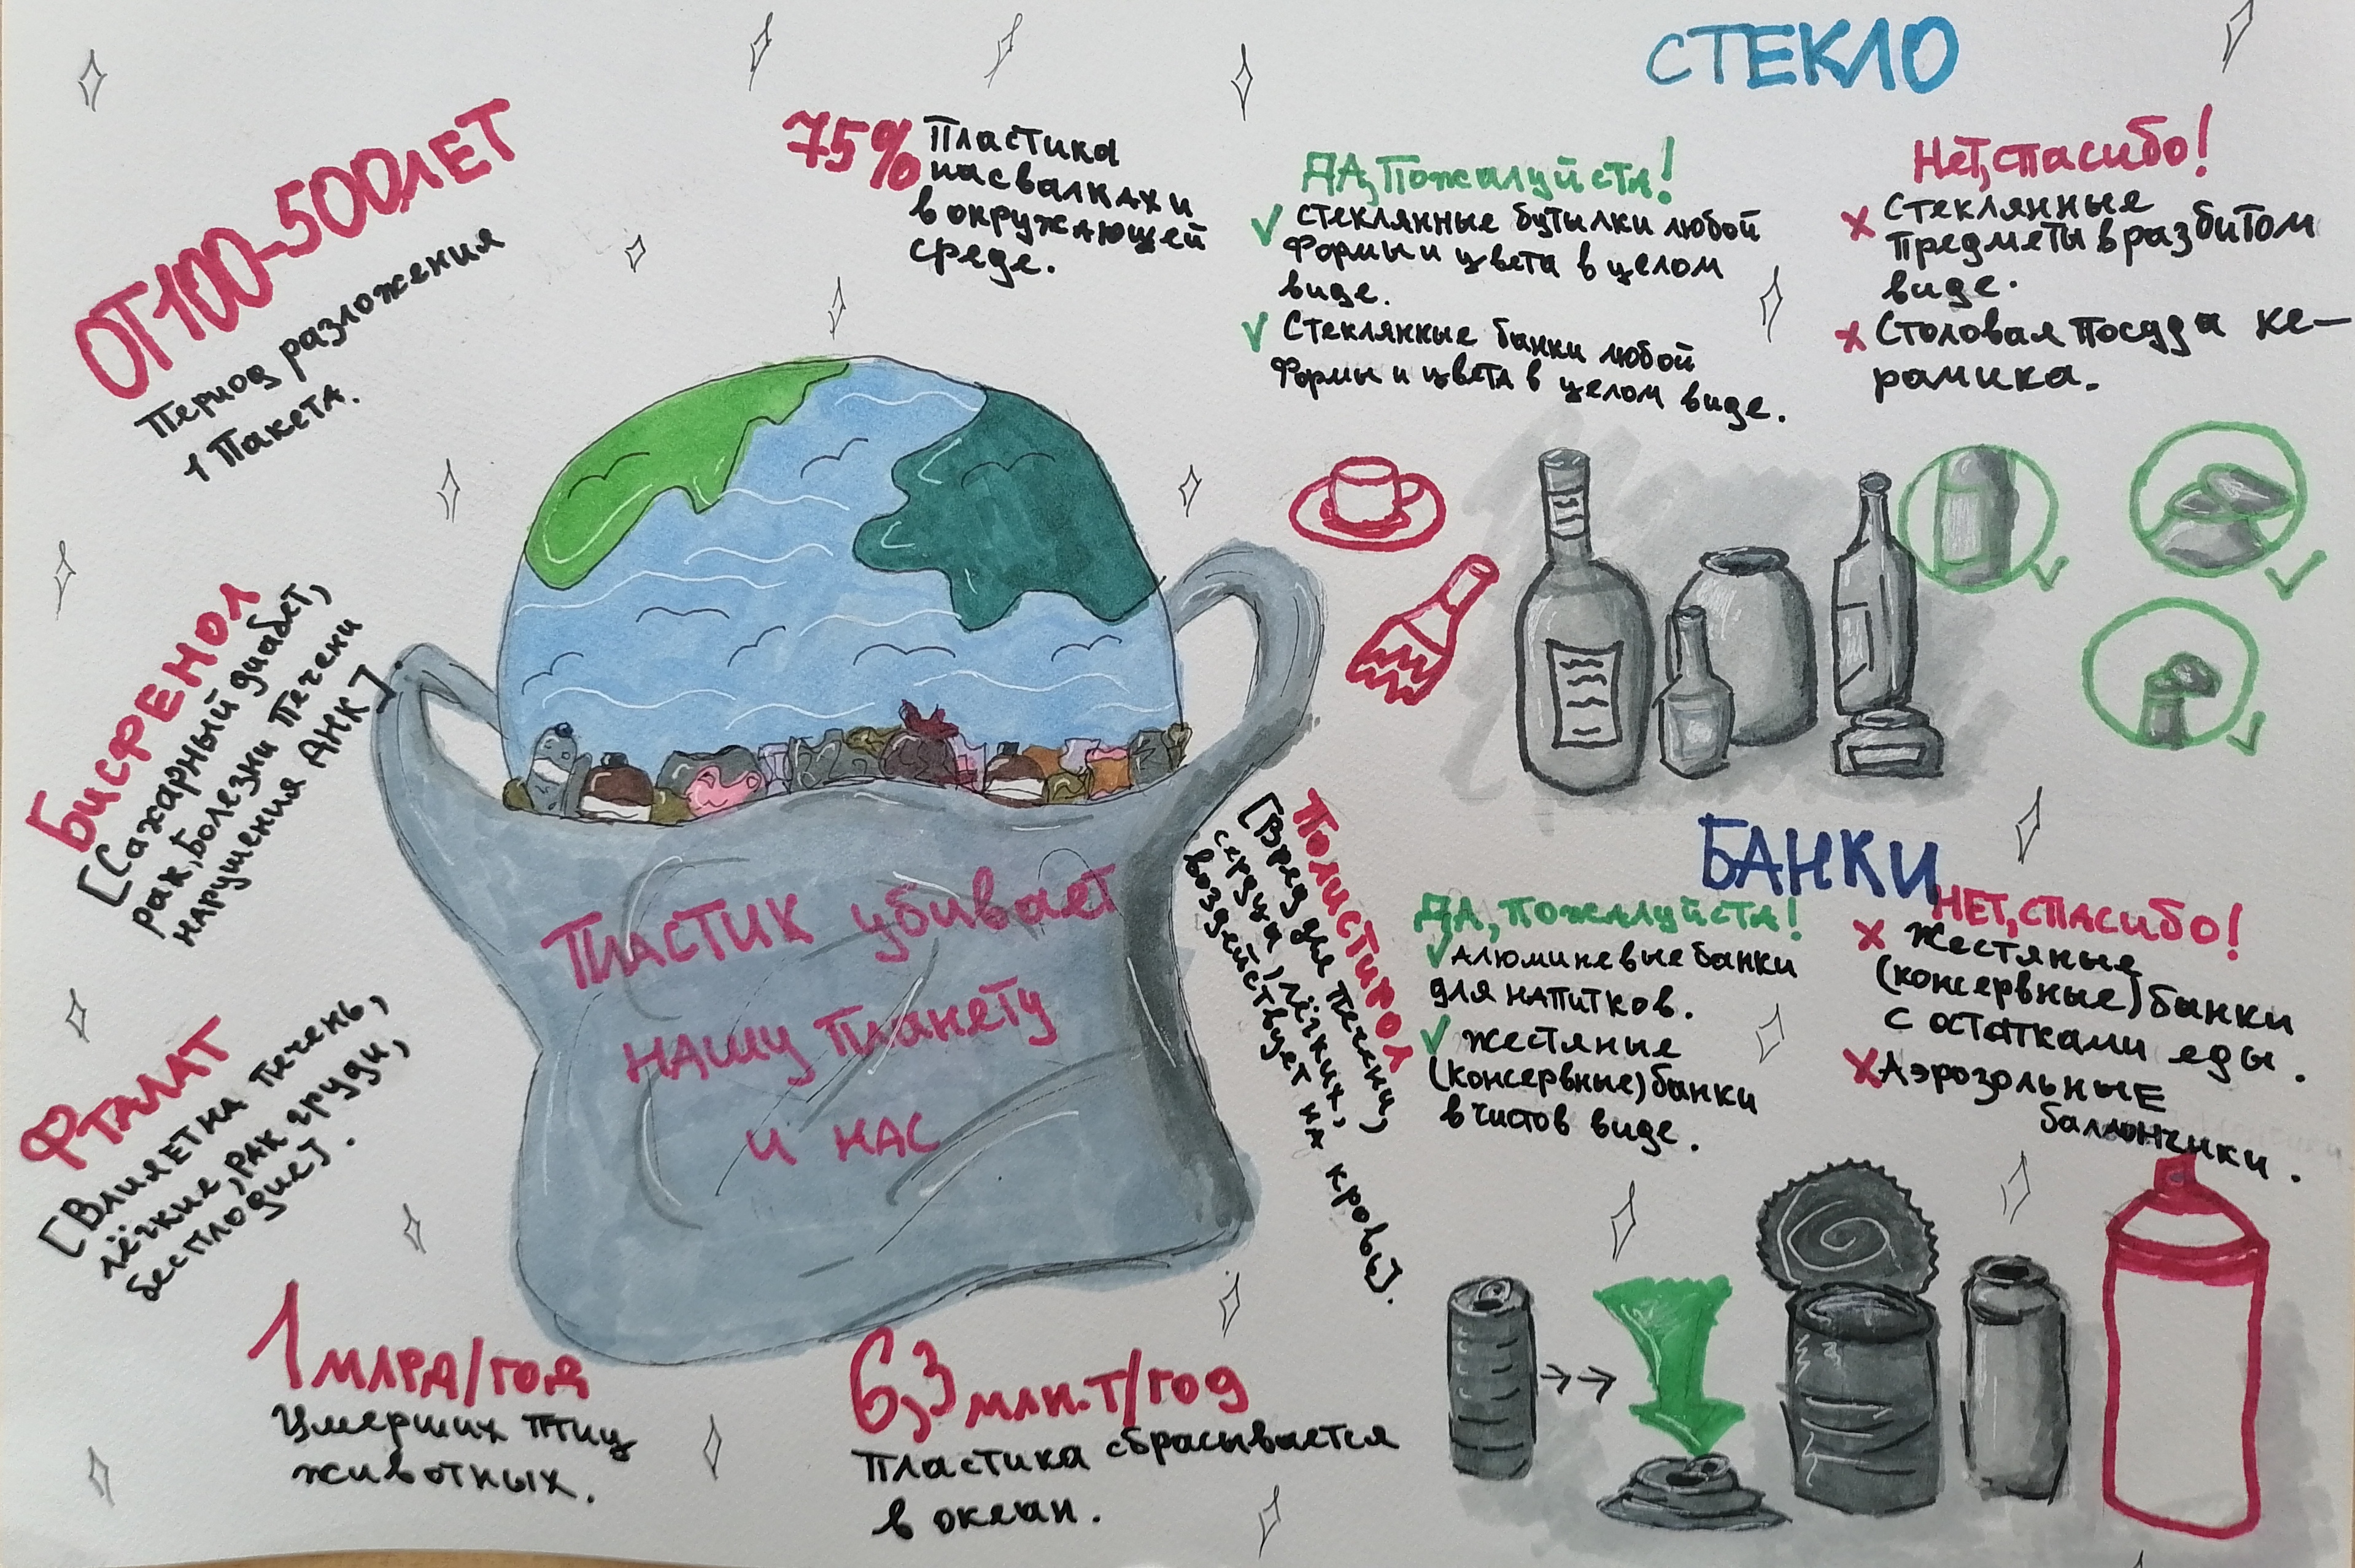 ОТ 100-500 ЛЕТ
Период разложения
1 Пакета.
75% Пластика
на свалках и
в окружающей
среде.
БИСФЕНОЛ
[Сахарный диабет,
рак, Болезни Печени
нарушения АНК]
ФТАЛАТ
[Влияет на печень,
лёгкие, рак груди,
бесплодие].
ПЛАСТИК убивает
нашу Планету
и нас
Полистирол
[Вред для Печени,
сердца, лёгких,
воздействует на кровь].
1 МЛРД/год
Умерших птиц
животных.
6,3 млн.т/год
Пластика сбрасывается
в океан.
СТЕКЛО
ДА, Пожалуйста!
✓ стеклянные бутылки любой
формы и цвета в целом
виде.
✓ Стеклянные банки любой
формы и цвета в целом виде.
Нет, спасибо!
✗ Стеклянные
предметы в разбитом
виде.
✗ Столовая посуда ке-
рамика.
БАНКИ
ДА, пожалуйста!
✓ Алюминевые банки
для напитков.
✓ жестяные
(консервные) банки
в чистов виде.
НЕТ, СПАСИБО!
✗ Жестяные
(консервные) банки
с остатками еды.
✗ Аэрозольные
баллончики.